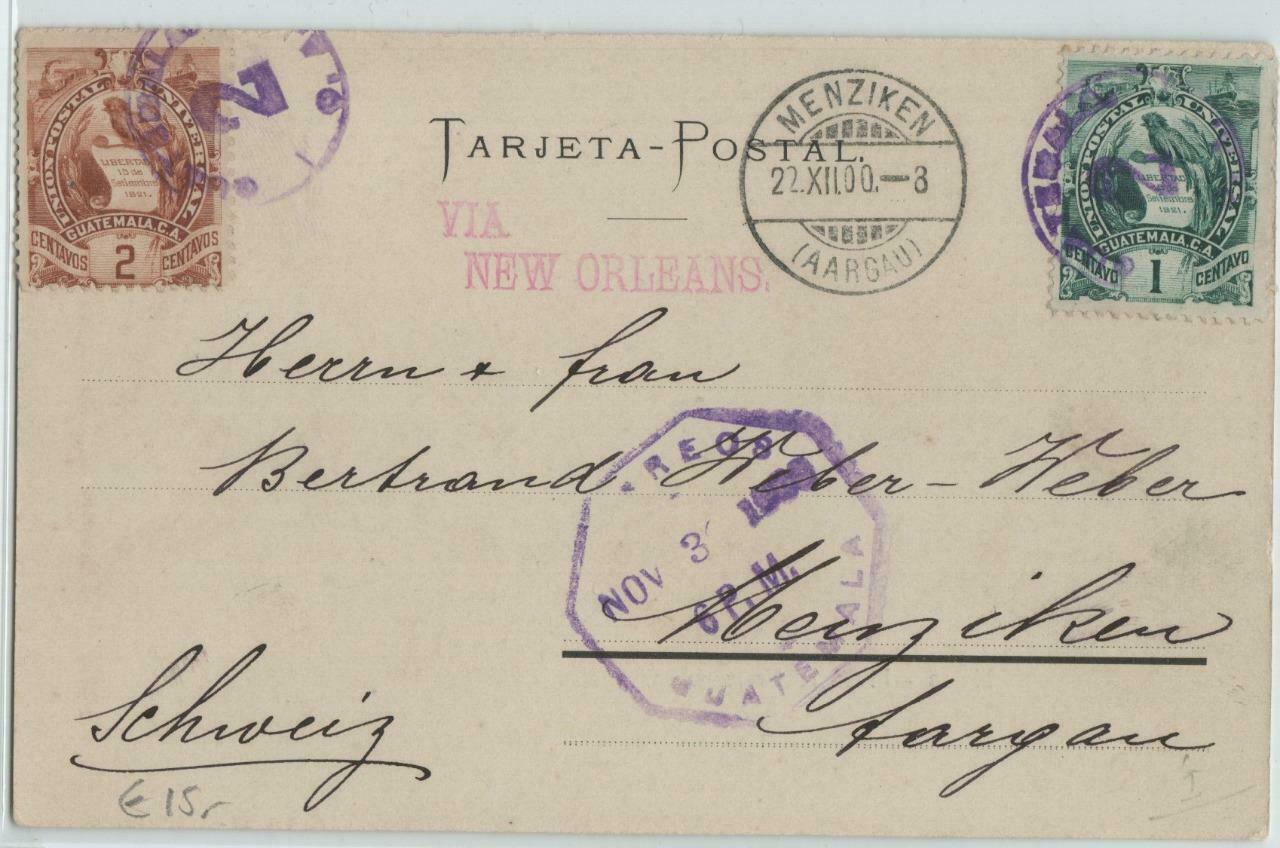 TARJETA-POSTAL.
VIA
NEW ORLEANS.
UNION POSTAL UNIVERSAL
LIBERTAD
15 de
Setiembre
1821.
GUATEMALA, C.A.
CENTAVOS 2 CENTAVOS
2
MENZIKEN
22.XII.00.-8
(AARGAU)
UNION POSTAL UNIVERSAL
LIBERTAD
15 de
Setiembre
1821.
GUATEMALA, C.A.
CENTAVO 1 CENTAVO
Herrn + Frau
Bertrand Weber-Weber
Menziken
Aargau
Schweiz
NOV 3
6 P. M.
GUATEMALA
€ 15,-